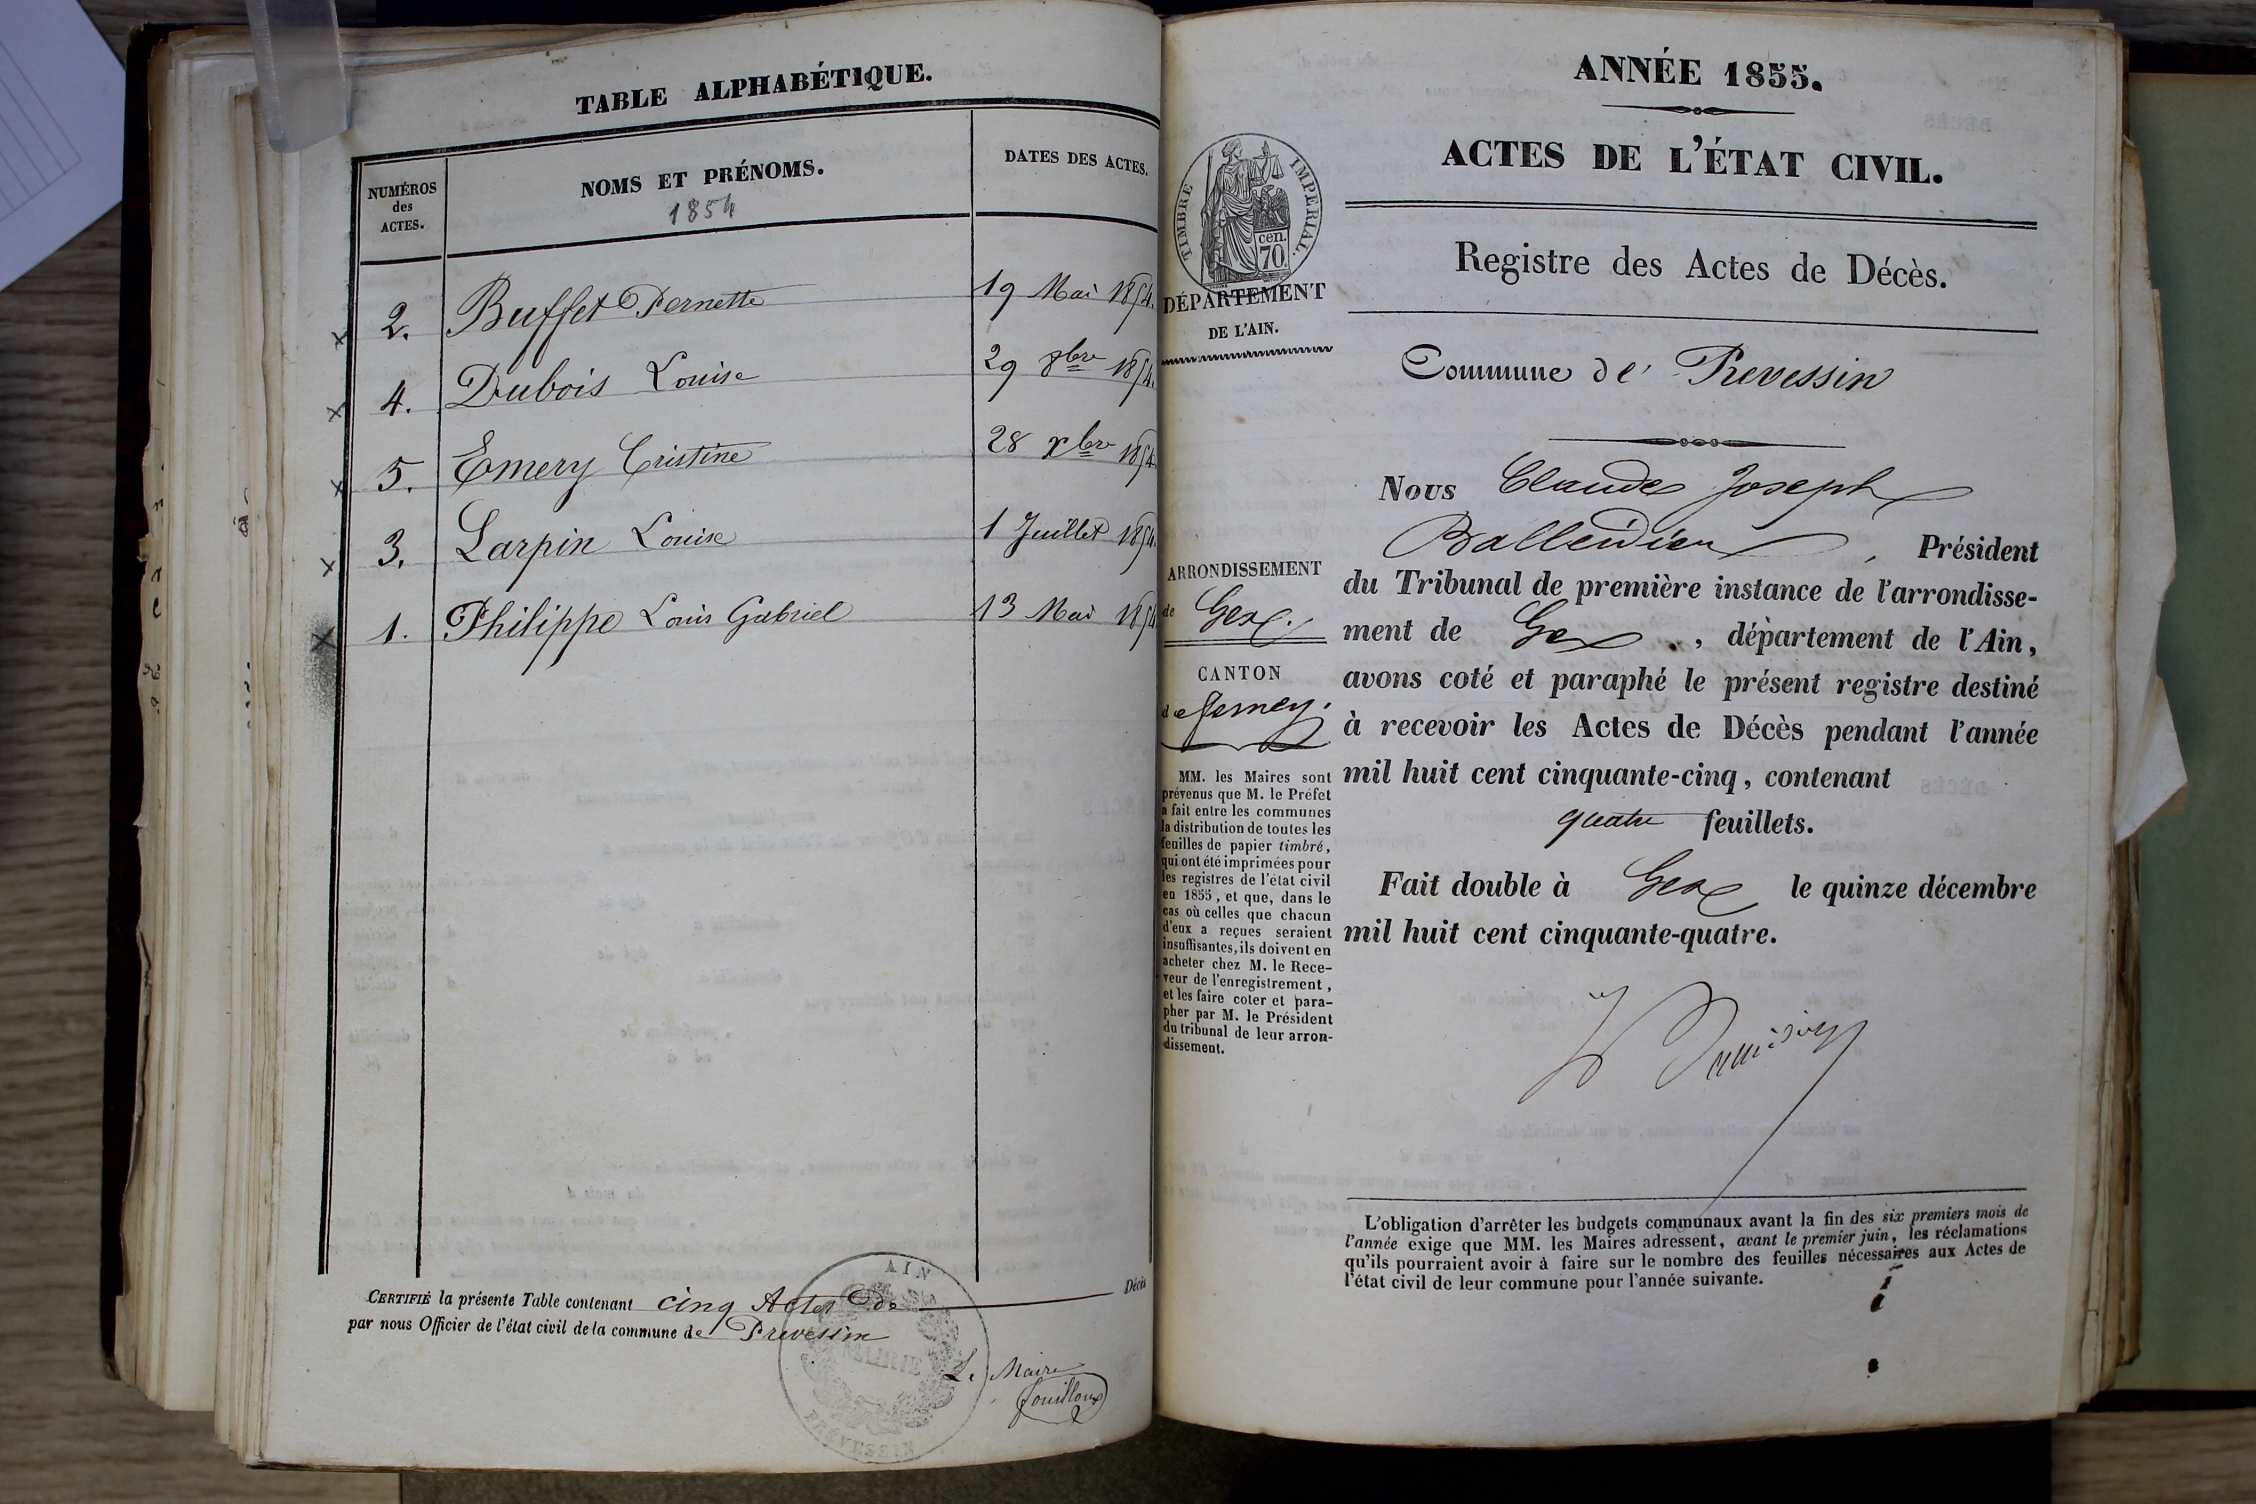 TABLE ALPHABÉTIQUE.
NUMÉROS
des
ACTES.
NOMS ET PRÉNOMS.
1854
DATES DES ACTES.
2. Buffet Pernette 19 Mai 1854.
4. Dubois Louise 29 8bre 1854.
5. Emery Cristine 28 xbre 1854.
3. Larpin Louise 1 Juillet 1854.
1. Philippe Louis Gabriel 13 Mai 1854
CERTIFIÉ la présente Table contenant cinq Actes de Décès
par nous Officier de l'état civil de la commune de Prevessin
Le Maire
Fouilloux
AIN
MAIRIE
PRÉVESSIN
ANNÉE 1855.
ACTES DE L'ÉTAT CIVIL.
Registre des Actes de Décès.
TIMBRE IMPÉRIAL.
cen.
70
DÉPARTEMENT
DE L'AIN.
ARRONDISSEMENT
de Gex.
CANTON
de Ferney.
MM. les Maires sont
prévenus que M. le Préfet
a fait entre les communes
la distribution de toutes les
feuilles de papier timbré,
qui ont été imprimées pour
les registres de l'état civil
en 1855, et que, dans le
cas où celles que chacun
d'eux a reçues seraient
insuffisantes, ils doivent en
acheter chez M. le Rece-
veur de l'enregistrement,
et les faire coter et para-
pher par M. le Président
du tribunal de leur arron-
dissement.
Commune de Prevessin
Nous Claude Joseph
Balleidier, Président
du Tribunal de première instance de l'arrondisse-
ment de Gex, département de l'Ain,
avons coté et paraphé le présent registre destiné
à recevoir les Actes de Décès pendant l'année
mil huit cent cinquante-cinq, contenant
quatre feuillets.
Fait double à Gex le quinze décembre
mil huit cent cinquante-quatre.
L'obligation d'arrêter les budgets communaux avant la fin des six premiers mois de
l'année exige que MM. les Maires adressent, avant le premier juin, les réclamations
qu'ils pourraient avoir à faire sur le nombre des feuilles nécessaires aux Actes de
l'état civil de leur commune pour l'année suivante.